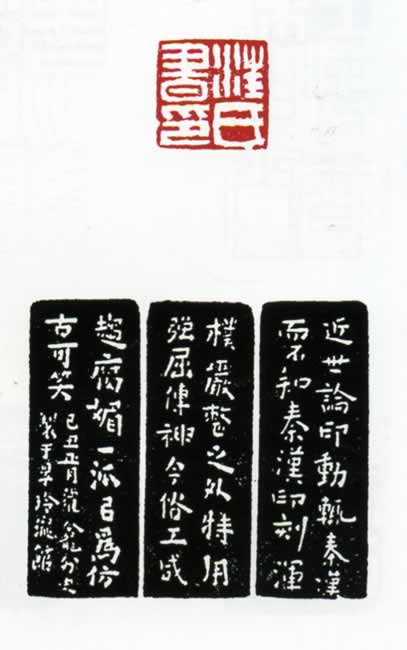 汪氏
書印
近世論印動輒秦漢
而不知秦漢印刻渾
樸嚴整之外特用
強屈傳神今俗工咸
趨腐媚一派㠯為仿
古可笑
己丑正月外史
製于翠玲瓏館